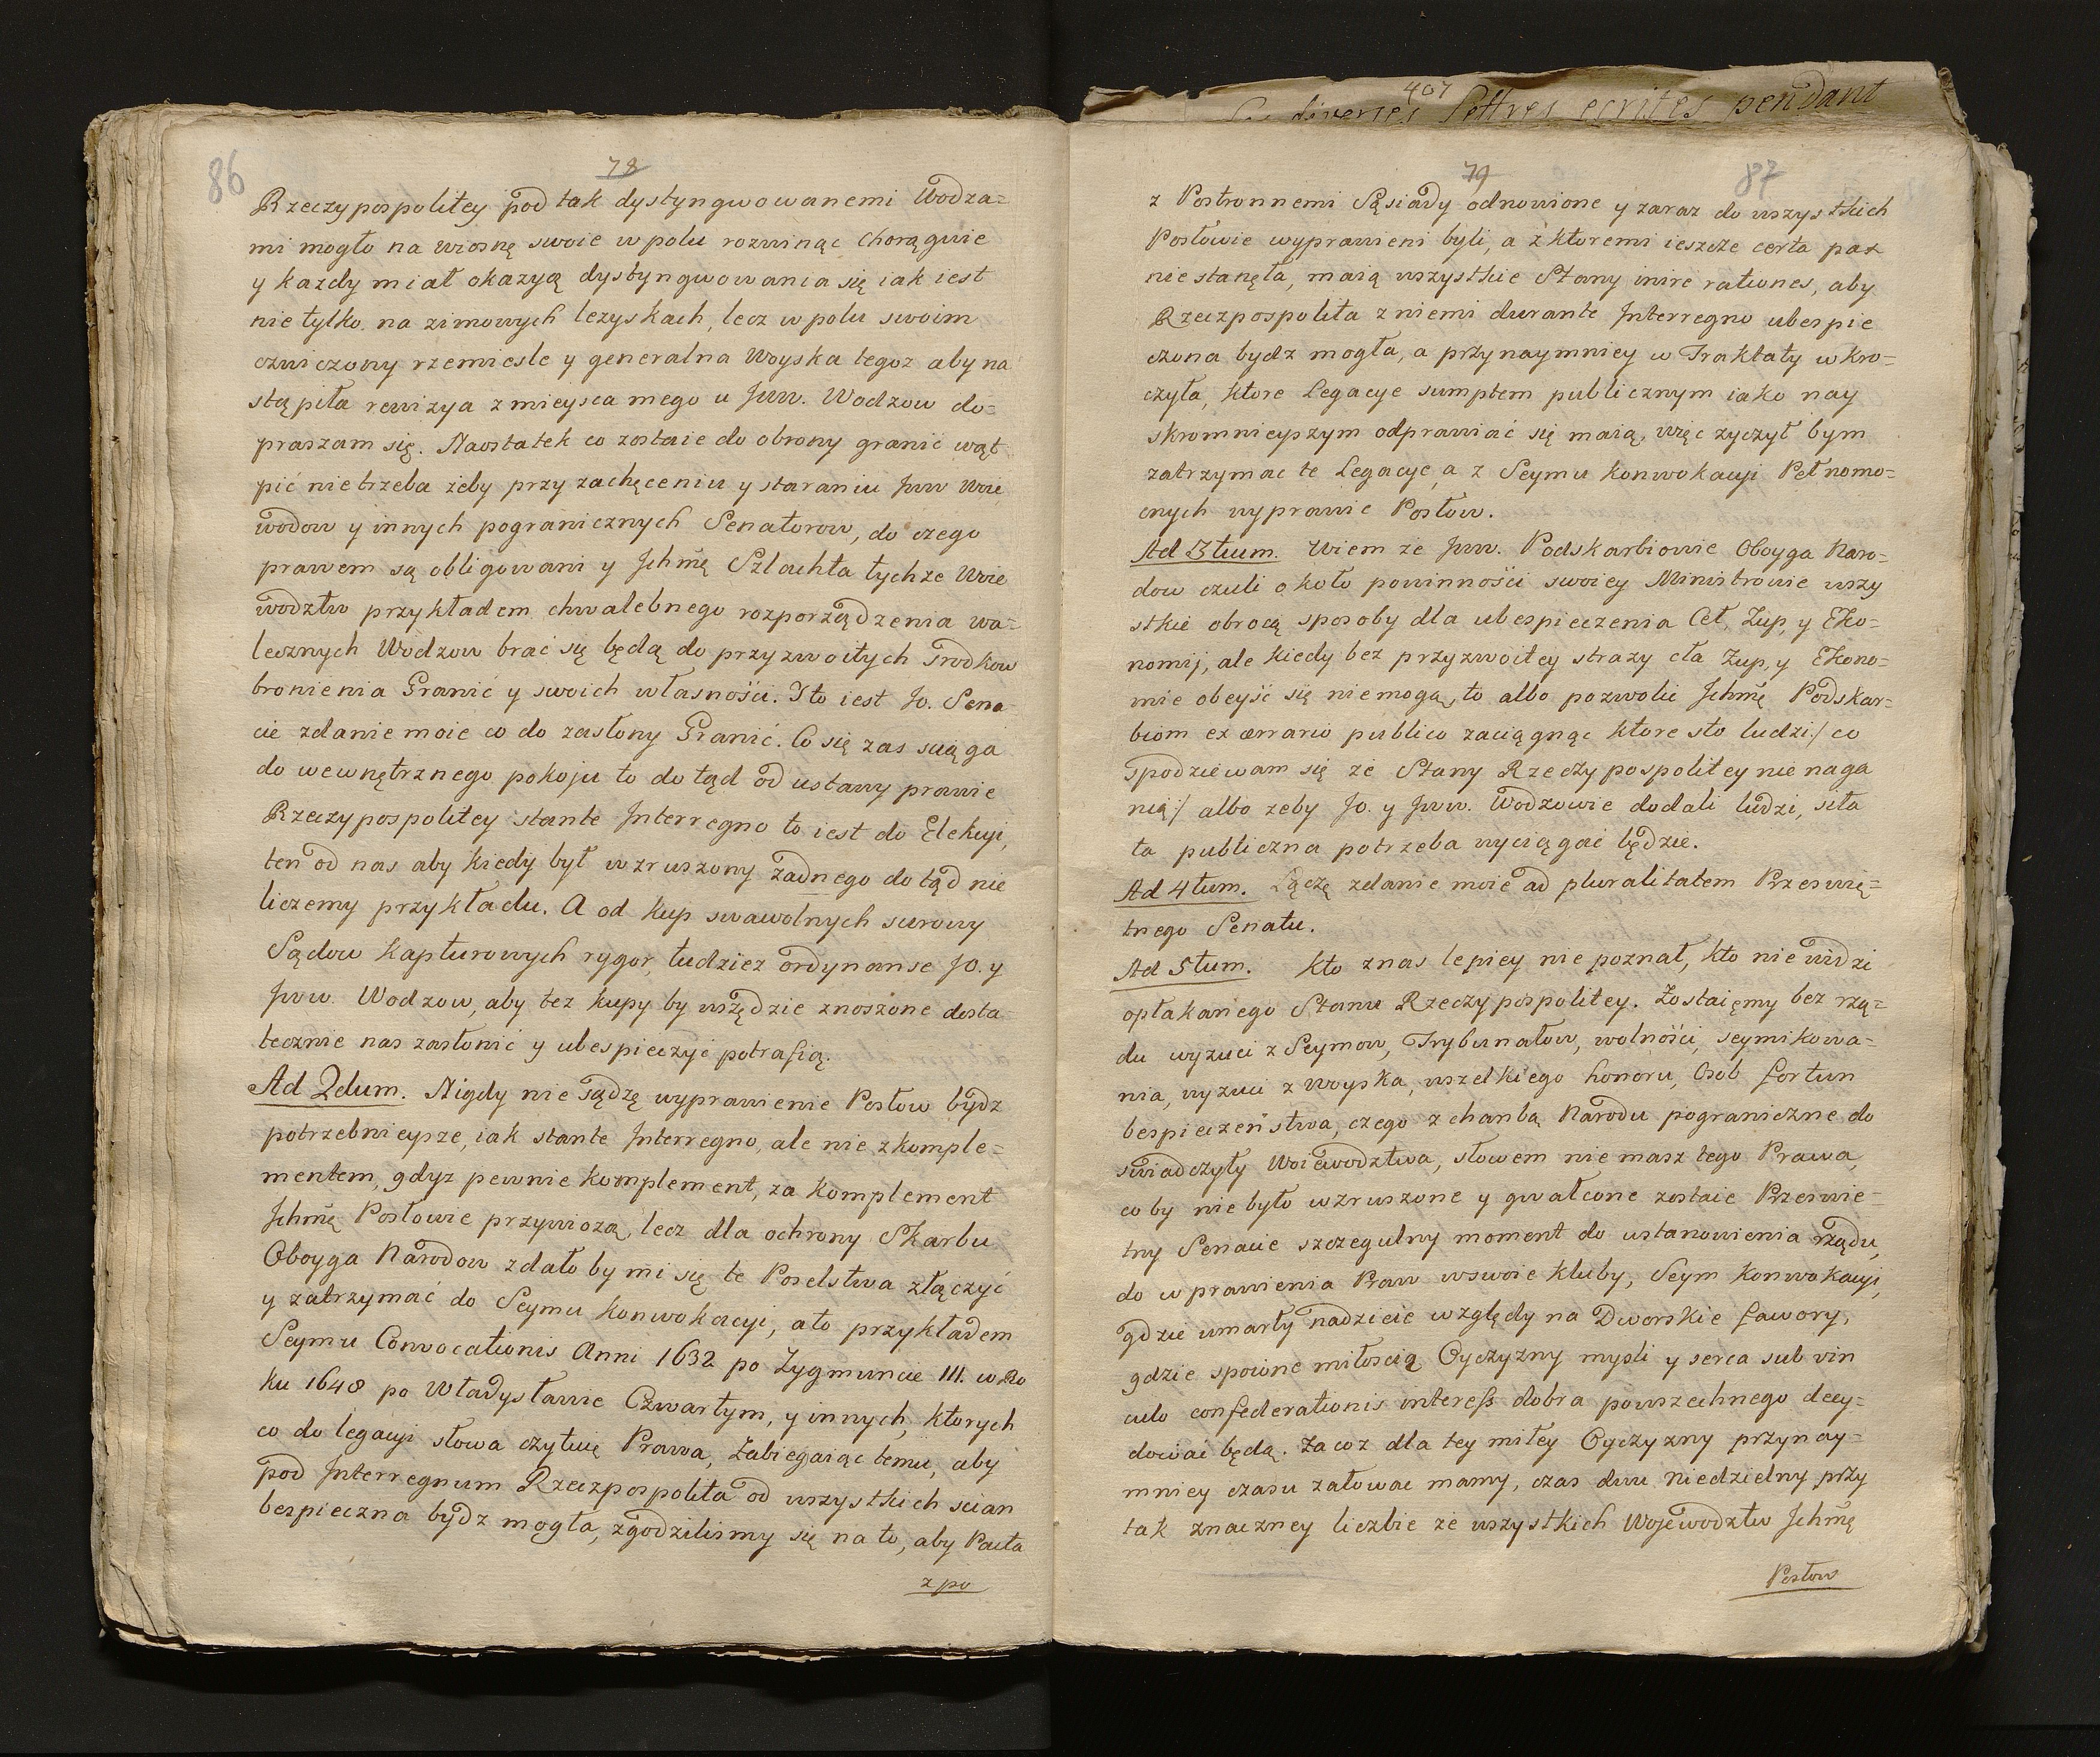 86
78
Rzeczypospolitey pod tak dystyngwowanemi Wodza=
mi mogło na wiosnę swoie w polu rozwinąc chorągwie
y kazdy miał okazyą dystyngwowania się iak iest
nie tylko na zimowych lezyskach, lecz w polu swoim
czwiczony rzemiesle y generalna Woyska tegoz aby na
stąpiła rewizya z mieysca mego u Jww. Wodzow do=
praszam się. Naostatek co zostaie do obrony granic wąt
pić nietrzeba żeby przy zachęceniu y staraniu Jww Woie
wodow y innych pogranicznych Senatorow, do czego
prawem są obligowani y Jchmę Szlachta tychze Woie
wodztw przykładem chwalebnego rozporządzenia wa=
lecznych Wodzow brać się będą do przyzwoitych srodkow
bronienia Granić y swoich własności. I to iest Jo. Sena
cie zdanie moie co do zasłony Granić. Co się zas sciąga
do wewnętrznego pokoju to do tąd od ustawy prawie
Rzeczypospolitey stante Interregno to iest do Elekcyi,
ten od nas aby kiedy był wzruszony zadnego do tąd nie
liczemy przykładu. A od kup swawolnych surowy
Sądow Kapturowych rygor, tudziez ordynanse Jo. y
Jww. Wodzow, aby tez kupy by wszędzie znoszone dosta
tecznie nas zasłonić y ubespieczyć potrafią.
Ad 2dum. Nigdy nie sądzę wyprawienie Posłow bydz
potrzebnieysze, iak stante Interregno, ale nie z komple=
mentem, gdyz pewnie komplement, za komplement
Jchmę Posłowie przywiozą, lecz dla ochrony Skarbu
Oboyga Narodow zdało by mi się te Poselstwa złączyć
y zatrzymać do Seymu konwokacyi, ato przykładem
Seymu Convocationis Anni 1632 po Zygmuncie III. w Ro
ku 1648 po Władysławie Czwartym, y innych, ktorych
co do legacyi słowa czytuię Prawa, Zabiegaiąc temu, aby
pod Interregnum Rzeczpospolita od wszystkich scian
bespieczna bydz mogła, zgodzilismy się na to, aby Pacta
z po
407
diverses lettres ecrites pendant
79
87
z Postronnemi Sąsiady odnowione y zaraz do wszystkich
Posłowie wyprawieni byli, a z ktoremi ieszcze certa pax
nie stanęła, maią wszystkie Stany inire rationes, aby
Rzeczpospolita z niemi durante Interregno ubespie
czona bydz mogła, a przynaymniey w Traktaty wkro=
czyła, ktore Legacye sumptem publicznym iako nay
skromnieyszym odprawiać się maią, więc zyczył bym
zatrzymac te Legacye, a z Seymu konwokacyi Pełnomo=
cnych wyprawic Posłow.
Ad 3tium. Wiem ze Jww. Podskarbiowie Oboyga Naro=
dow czuli około powinności swoiey Ministrowie wszy
stkie obrocą sposoby dla ubespieczenia Ceł, Zup, y Eko=
nomij, ale kiedy bez przyzwoitey strazy cła Zup, y Ekono=
mie obeyść się niemogą, to albo pozwolic Jchmę Podskar=
biom ex ærrario publico zaciągnąc ktore sto ludzi:/ co
spodziewam się ze Stany Rzeczypospolitey nie naga
nią:/ albo zeby Jo. y Jww. Wodzowie dodali ludzi, siła
ta publiczna potrzeba wyciągać będzie.
Ad 4tum. Łączę zdanie moie ad pluralitatem Przeswię=
tnego Senatu.
Ad 5tum. Kto znas lepiey nie poznał, kto nie widzi
opłakanego Stanu Rzeczypospolitey. Zostaięmy bez rzą=
du wyzuci z Seymow, Trybunałow, wolności, seymikowa=
nia, wyzuci z woyska, wszelkiego honoru, Osob fortun
bespieczeństwa, czego z chanbą Narodu pograniczne do
swiadczyły Woiewodztwa, słowem nie masz tego Prawa,
co by nie było wzruszone y gwałcone zostaie Przeswie=
tny Senacie szczegulny moment do ustanowienia rządu,
do wprawienia Praw wswoie kluby, Seym konwokacyi,
gdzie umarły nadzieie względy na Dworskie fawory,
gdzie spoione miłoscią Oyczyzny mysli y serca sub vin
culo confederationis interess dobra powszechnego decy=
dować będą. Za coz dla tey miłey Oyczyzny przynay=
mniey czasu załowac mamy, czas dwu niedzielny przy
tak znaczney liczbie ze wszystkich Wojewodztw Jchmę
Posłow